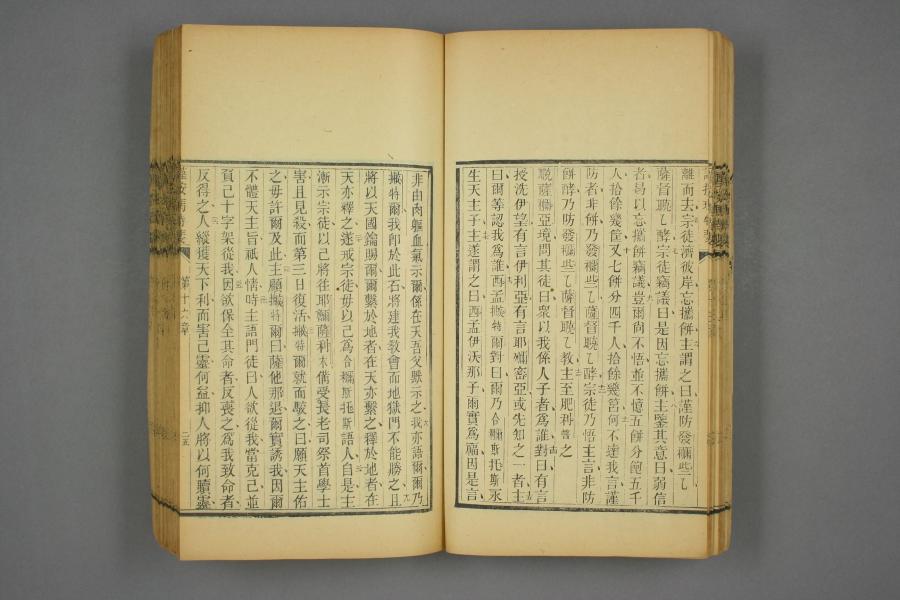 離而去宗徒濟彼岸忘攜餅主謂之曰謹防發欄些乙
薩督曉乙酵宗徒竊議曰是因忘攜餅主鑒其意曰弱信
者曷以忘攜餅竊議豈爾尙不悟並不憶五餅分飽五千
人拾餘幾筐又七餅分四千人拾餘幾筥何不達我言謹
防者非餅乃發欄些乙薩督曉乙酵宗徒乃悟主言非防
餅酵乃防發欄些乙薩督曉乙教主至肥利普之
薩彌亞境問其徒曰衆以我係人子者爲誰對曰有言
授洗伊望有言伊利亞有言耶彌亞或先知之一者主
曰爾等認我爲誰西孟撇特爾對曰爾乃合彌斯托斯永
生天主子主遂謂之曰西孟伊沃那子爾實爲福因是言
非由肉軀血氣示爾係在天吾父默示之我亦語爾爾乃
撇特爾我卽於此石將建我敎會而地獄門不能勝之且
將以天國鑰賜爾爾繫於地者在天亦繫之釋於地者在
天亦釋之遂戒宗徒毋以己爲合彌斯托斯語人自是主
漸示宗徒以己將往耶薩利木備受長老司祭首學士
害且見殺而第三日復活撇特爾就而駁之曰願天主佑
之毋許爾及此主顧撇特爾曰薩他那退爾實誘我因爾
不體天主旨祇人情時主語門徒曰人欲從我當克己並
負己十字架從我因欲保全其命者反喪之爲我致命者
反得之人縱獲天下利而害己靈何益抑人將以何贖靈
第十六章
二五